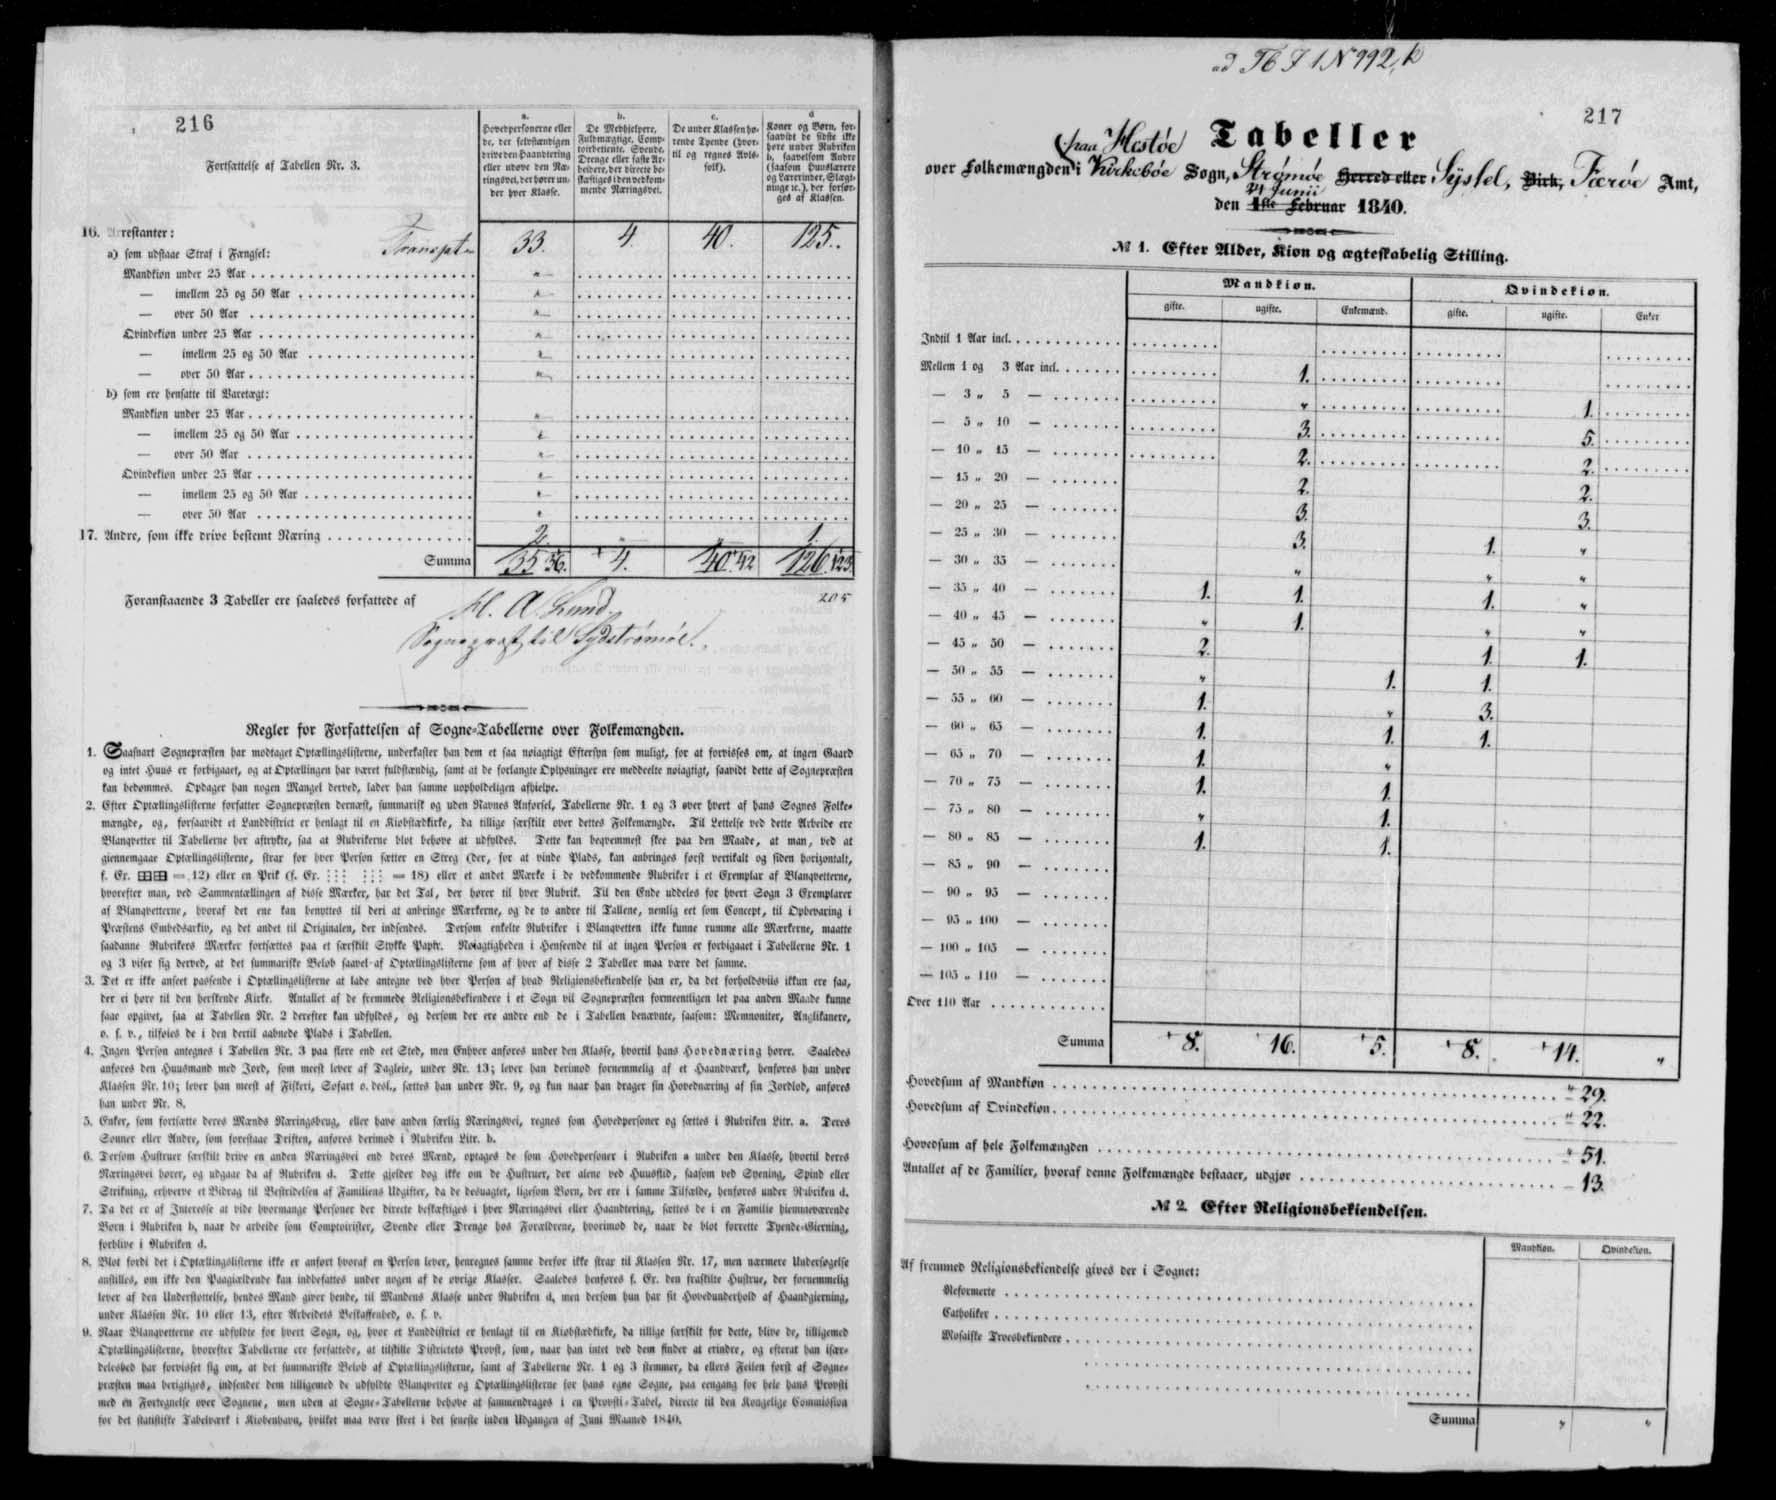 216
Fortsættelse af Tabellen Nr. 3.
a.
Hovedpersonerne eller
de, der selvstændigen
drive den Haandtering
eller udøve den Næ-
ringsvei, der hører un-
der hver Klasse.
b.
De Medhjelpere,
Fuldmægtige, Comp-
toirbetiente, Svende,
Drenge eller faste Ar-
beidere, der directe be-
skæftiges i den vedkom-
mende Næringsvei.
c.
De under Klassen hø-
rende Tyende (hvor-
til og regnes Avls-
folk).
d
Koner og Børn, for-
saavidt de sidste ikke
høre under Rubriken
b, saavelsom Andre
(saasom Huuslærere
og Lærerinder, Slægt-
ninge ic.), der forsør-
ges af Klassen.
16. Arrestanter: Transport 33. 4. 40. 125.
a) som udstaae Straf i Fængsel:
Mandkiøn under 25 Aar "
— imellem 25 og 50 Aar "
— over 50 Aar "
Qvindekiøn under 25 Aar "
— imellem 25 og 50 Aar "
— over 50 Aar "
b) som ere hensatte til Varetægt:
Mandkiøn under 25 Aar "
— imellem 25 og 50 Aar "
— over 50 Aar "
Qvindekiøn under 25 Aar "
— imellem 25 og 50 Aar "
— over 50 Aar "
17. Andre, som ikke drive bestemt Næring 2. " " 1.
Summa 35 36. + 4. 40. 42 126. 123
205
Foranstaaende 3 Tabeller ere saaledes forfattede af H. A. Lund.
Sognepræst til Sydstrømøe.
Regler for Forfattelsen af Sogne-Tabellerne over Folkemængden.
1. Saasnart Sognepræsten har modtaget Optællingslisterne, underkaster han dem et saa nøiagtigt Eftersyn som muligt, for at forvisses om, at ingen Gaard
og intet Huus er forbigaaet, og at Optællingen har været fuldstændig, samt at de forlangte Oplysninger ere meddeelte nøiagtigt, saavidt dette af Sognepræsten
kan bedømmes. Opdager han nogen Mangel derved, lader han samme uopholdeligen afhielpe.
2. Efter Optællingslisterne forfatter Sognepræsten dernæst, summarisk og uden Navnes Anførsel, Tabellerne Nr. 1 og 3 over hvert af hans Sognes Folke-
mængde, og, forsaavidt et Landdistrict er henlagt til en Kiøbstædkirke, da tillige særskilt over dettes Folkemængde. Til Lettelse ved dette Arbeide ere
Blanqvetter til Tabellerne her aftrykte, saa at Rubrikerne blot behøve at udfyldes. Dette kan beqvemmest skee paa den Maade, at man, ved at
giennemgaae Optællingslisterne, strax for hver Person sætter en Streg (der, for at vinde Plads, kan anbringes først vertikalt og siden horizontalt,
f. Ex. = 12) eller en Prik (f. Ex. = 18) eller et andet Mærke i de vedkommende Rubriker i et Exemplar af Blanqvetterne,
hvorefter man, ved Sammentællingen af disse Mærker, har det Tal, der hører til hver Rubrik. Til den Ende uddeles for hvert Sogn 3 Exemplarer
af Blanqvetterne, hvoraf det ene kan benyttes til deri at anbringe Mærkerne, og de to andre til Tallene, nemlig eet som Concept, til Opbevaring i
Præstens Embedsarkiv, og det andet til Originalen, der indsendes. Dersom enkelte Rubriker i Blanqvetten ikke kunne rumme alle Mærkerne, maatte
saadanne Rubrikers Mærker fortsættes paa et særskilt Stykke Papir. Nøiagtigheden i Henseende til at ingen Person er forbigaaet i Tabellerne Nr. 1
og 3 viser sig derved, at det summariske Beløb saavel af Optællingslisterne som af hver af disse 2 Tabeller maa være det samme.
3. Det er ikke anseet passende i Optællingslisterne at lade antegne ved hver Person af hvad Religionsbekiendelse han er, da det forholdsviis ikkun ere faa,
der ei høre til den herskende Kirke. Antallet af de fremmede Religionsbekiendere i et Sogn vil Sognepræsten formeentligen let paa anden Maade kunne
faae opgivet, saa at Tabellen Nr. 2 derefter kan udfyldes, og dersom der ere andre end de i Tabellen benævnte, saasom: Memnoniter, Anglikanere,
o. s. v., tilføies de i den dertil aabnede Plads i Tabellen.
4. Ingen Person antegnes i Tabellen Nr. 3 paa flere end eet Sted, men Enhver anføres under den Klasse, hvortil hans Hovednæring hører. Saaledes
anføres den Huusmand med Jord, som meest lever af Dagleie, under Nr. 13; lever han derimod fornemmelig af et Haandværk, henføres han under
Klassen Nr. 10; lever han meest af Fiskeri, Søfart o. desl., sættes han under Nr. 9, og kun naar han drager sin Hovednæring af sin Jordlod, anføres
han under Nr. 8.
5. Enker, som fortsætte deres Mænds Næringsbrug, eller have anden særlig Næringsvei, regnes som Hovedpersoner og sættes i Rubriken Litr. a. Deres
Sønner eller Andre, som forestaae Driften, anføres derimod i Rubriken Litr. b.
6. Dersom Hustruer særskilt drive en anden Næringsvei end deres Mænd, optages de som Hovedpersoner i Rubriken a under den Klasse, hvortil deres
Næringsvei hører, og udgaae da af Rubriken d. Dette gjelder dog ikke om de Hustruer, der alene ved Huusflid, saasom ved Syening, Spind eller
Strikning, erhverve et Bidrag til Bestridelsen af Familiens Udgifter, da de desuagtet, ligesom Børn, der ere i samme Tilfælde, henføres under Rubriken d.
7. Da det er af Interesse at vide hvormange Personer der directe beskæftiges i hver Næringsvei eller Haandtering, sættes de i en Familie hiemmeværende
Børn i Rubriken b, naar de arbeide som Comptoirister, Svende eller Drenge hos Forældrene, hvorimod de, naar de blot forrette Tyende-Gierning,
forblive i Rubriken d.
8. Blot fordi det i Optællingslisterne ikke er anført hvoraf en Person lever, henregnes samme derfor ikke strax til Klassen Nr. 17, men nærmere Undersøgelse
anstilles, om ikke den Paagiældende kan indbefattes under nogen af de øvrige Klasser. Saaledes henføres f. Ex. den fraskilte Hustrue, der fornemmelig
lever af den Understøttelse, hendes Mand giver hende, til Mandens Klasse under Rubriken d, men dersom hun har sit Hovedunderhold af Haandgierning,
under Klassen Nr. 10 eller 13, efter Arbeidets Beskaffenhed, o. s. v.
9. Naar Blanqvetterne ere udfyldte for hvert Sogn, og, hvor et Landdistrict er henlagt til en Kiøbstædkirke, da tillige særskilt for dette, blive de, tilligemed
Optællingslisterne, hvorefter Tabellerne ere forfattede, at tilstille Districtets Provst, som, naar han intet ved dem finder at erindre, og efterat han især-
deleshed har forvisset sig om, at det summariske Beløb af Optællingslisterne, samt af Tabellerne Nr. 1 og 3 stemmer, da ellers Feilen først af Sogne-
præsten maa berigtiges, indsender dem tilligemed de udfyldte Blanqvetter og Optællingslisterne for hans egne Sogne, paa eengang for hele hans Provsti
med en Fortegnelse over Sognene, men uden at Sogne-Tabellerne behøve at sammendrages i en Provsti-Tabel, directe til den Kongelige Commission
for det statistiske Tabelværk i Kiøbenhavn, hvilket maa være skeet i det seneste inden Udgangen af Juni Maaned 1840.
ad Tb J 1 N 992, k
217
Tabeller
paa Hestøe
over Folkemængden i Kirkebøe Sogn, Strømøe Herred eller Syssel, Birk, Færøe Amt,
24 Junii
den 1ste Februar 1840.
№ 1. Efter Alder, Kiøn og ægteskabelig Stilling.
Mandkiøn. Qvindekiøn.
gifte. ugifte. Enkemænd. gifte. ugifte. Enker
Indtil 1 Aar incl.
Mellem 1 og 3 Aar incl. 1.
— 3 „ 5 — " 1.
— 5 „ 10 — 3. 5.
— 10 „ 15 — 2. 2.
— 15 „ 20 — 2. 2.
— 20 „ 25 — 3. 3.
— 25 „ 30 — 3. 1. "
— 30 „ 35 — " " "
— 35 „ 40 — 1. 1. 1. "
— 40 „ 45 — " 1. " "
— 45 „ 50 — 2. 1. 1.
— 50 „ 55 — " 1. 1.
— 55 „ 60 — 1. " 3.
— 60 „ 65 — 1. 1. 1.
— 65 „ 70 — 1. "
— 70 „ 75 — 1. 1.
— 75 „ 80 — " 1.
— 80 „ 85 — 1. 1.
— 85 „ 90 —
— 90 „ 95 —
— 95 „ 100 —
— 100 „ 105 —
— 105 „ 110 —
Over 110 Aar
Summa + 8. + 16. + 5. + 8. + 14. "
Hovedsum af Mandkiøn " 29.
Hovedsum af Qvindekiøn " 22.
Hovedsum af hele Folkemængden " 51.
Antallet af de Familier, hvoraf denne Folkemængde bestaaer, udgjør 13.
№ 2. Efter Religionsbekiendelsen.
Mandkiøn. Qvindekiøn.
Af fremmed Religionsbekiendelse gives der i Sognet:
Reformerte
Catholiker
Mosaiske Troesbekiendere
Summa " "